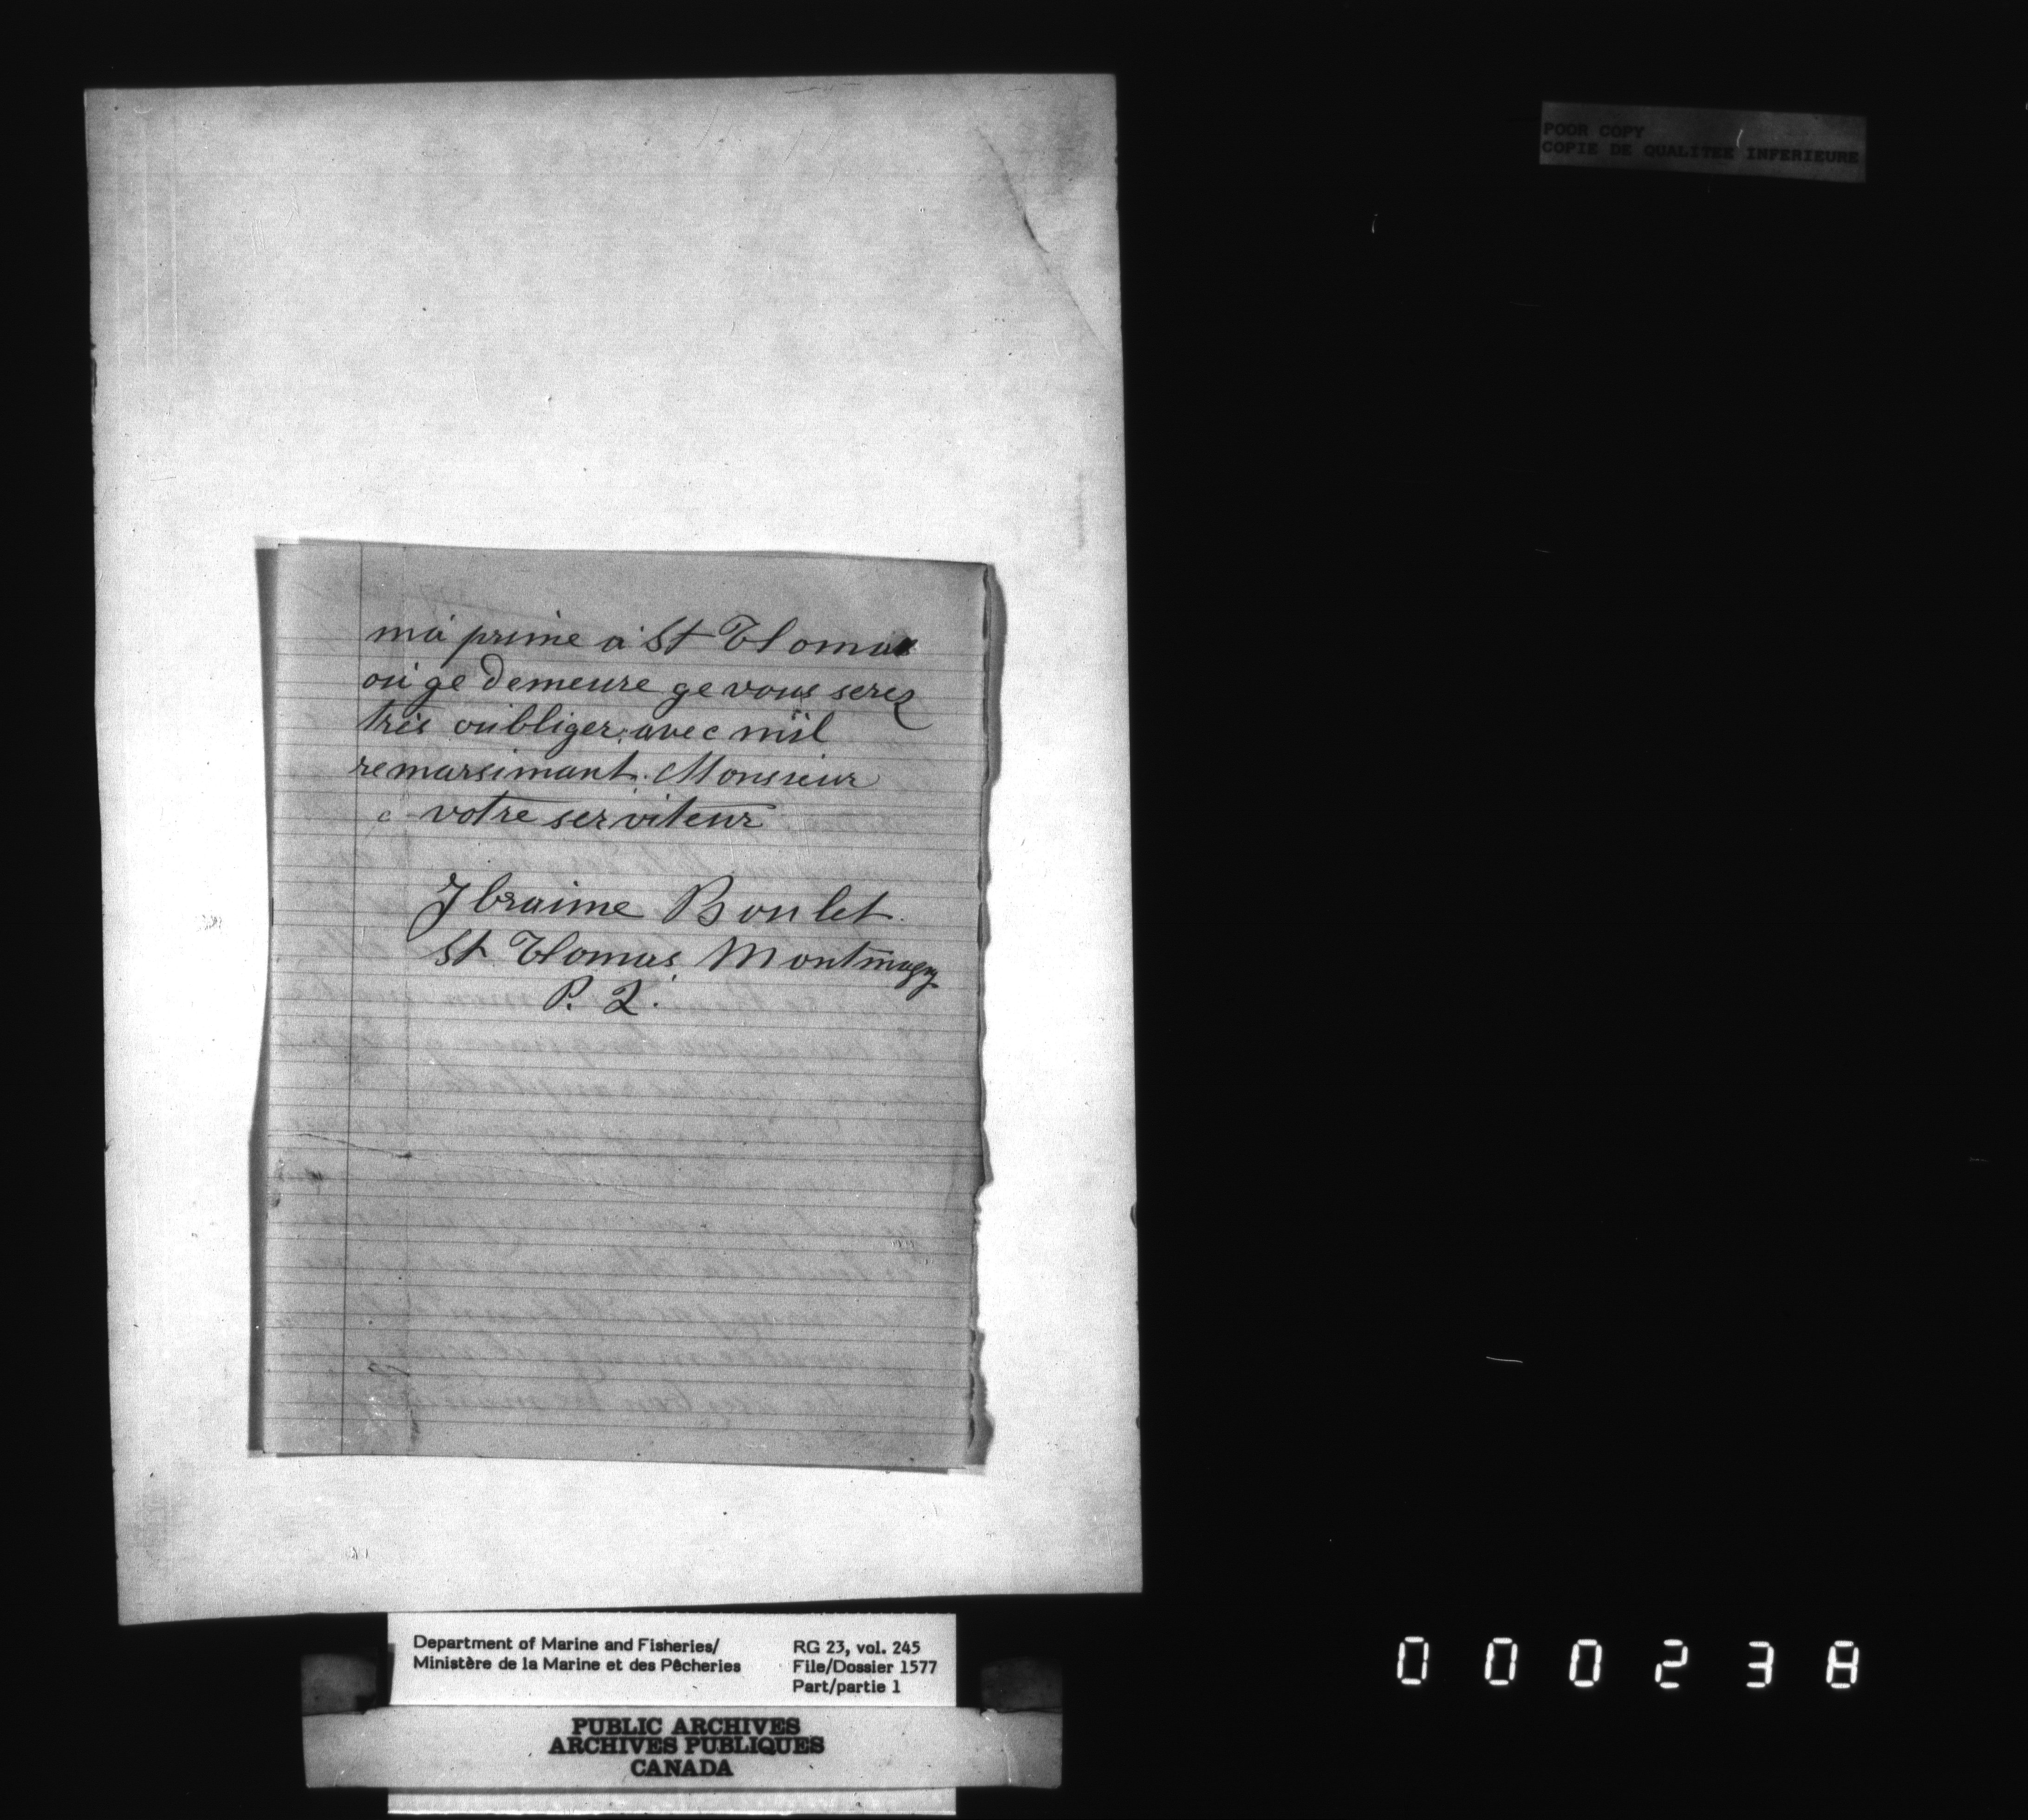 POOR COPY
COPIE DE QUALITEE INFERIEURE
ma prime a St Thomas
où ge demeure ge vous serez
très oubliger avec mil
remarsimant. Monsieur
votre serviteur
Ibraime Boulet.
St Thomas Montmagy
P. Q.
Department of Marine and Fisheries/
Ministère de la Marine et des Pêcheries
RG 23, vol. 245
File/Dossier 1577
Part/partie 1
PUBLIC ARCHIVES
ARCHIVES PUBLIQUES
CANADA
000238